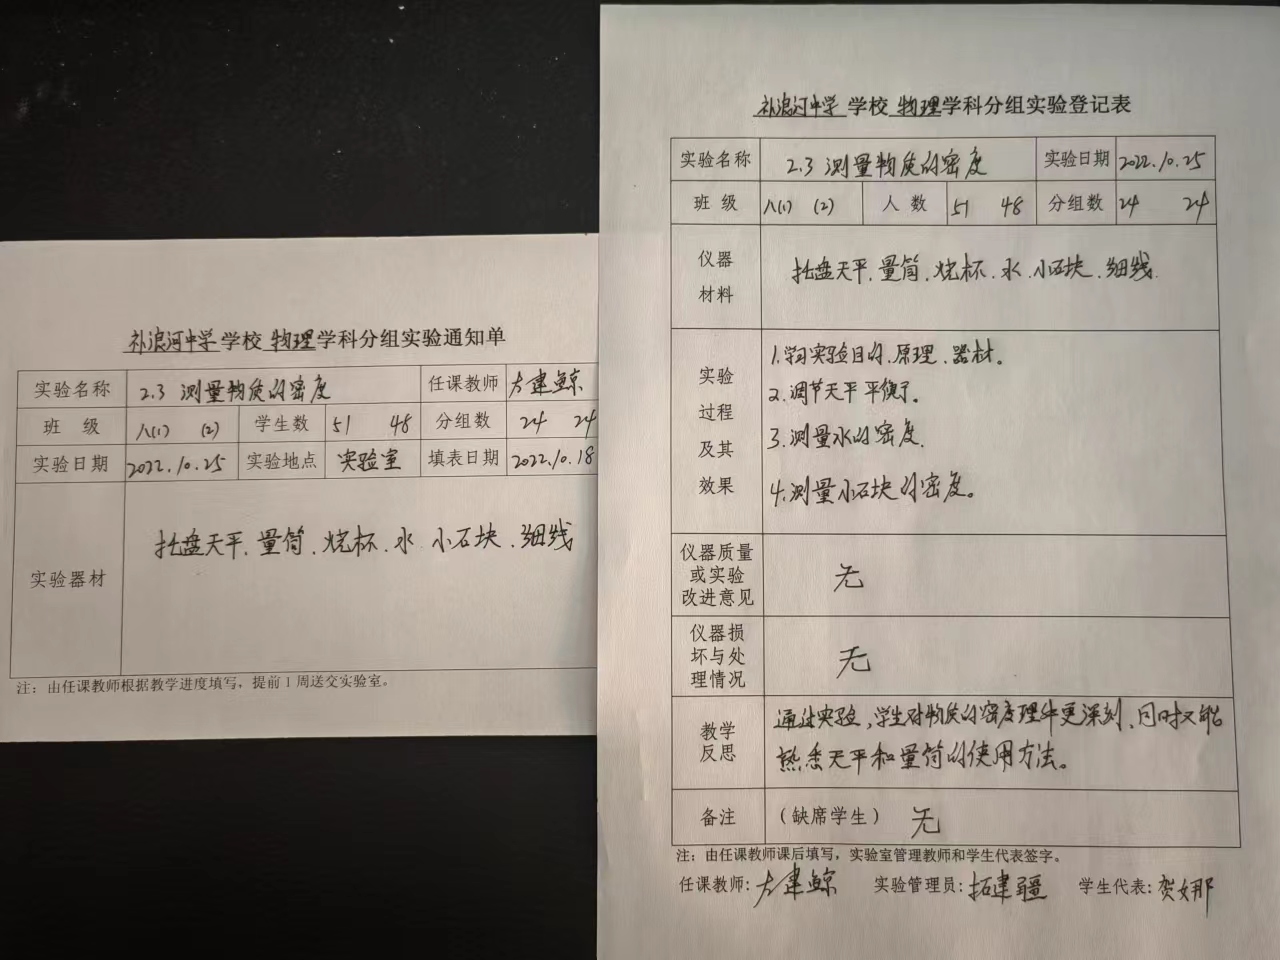 补浪河中学 学校 物理学科分组实验通知单
实验名称 2.3 测量物质的密度 任课教师 建鲸
班 级 八(1) (2) 学生数 51 48 分组数 24 24
实验日期 2022.10.25 实验地点 实验室 填表日期 2022.10.18
实验器材 托盘天平.量筒.烧杯.水.小石块.细线
注：由任课教师根据教学进度填写，提前1周送交实验室。
补浪河中学 学校 物理学科分组实验登记表
实验名称 2.3 测量物质的密度 实验日期 2022.10.25
班 级 八(1) (2) 人 数 51 48 分组数 24 24
仪器材料 托盘天平.量筒.烧杯.水.小石块.细线.
实验过程及其效果
1.学习实验目的、原理、器材。
2.调节天平平衡了。
3.测量水的密度.
4.测量小石块的密度。
仪器质量或实验改进意见 无
仪器损坏与处理情况 无
教学反思 通过实验,学生对物质的密度理件更深刻、同时又能
熟悉天平和量筒的使用方法。
备注 (缺席学生) 无
注：由任课教师课后填写，实验室管理教师和学生代表签字。
任课教师: 建鲸 实验管理员: 拓建疆 学生代表: 贺娜